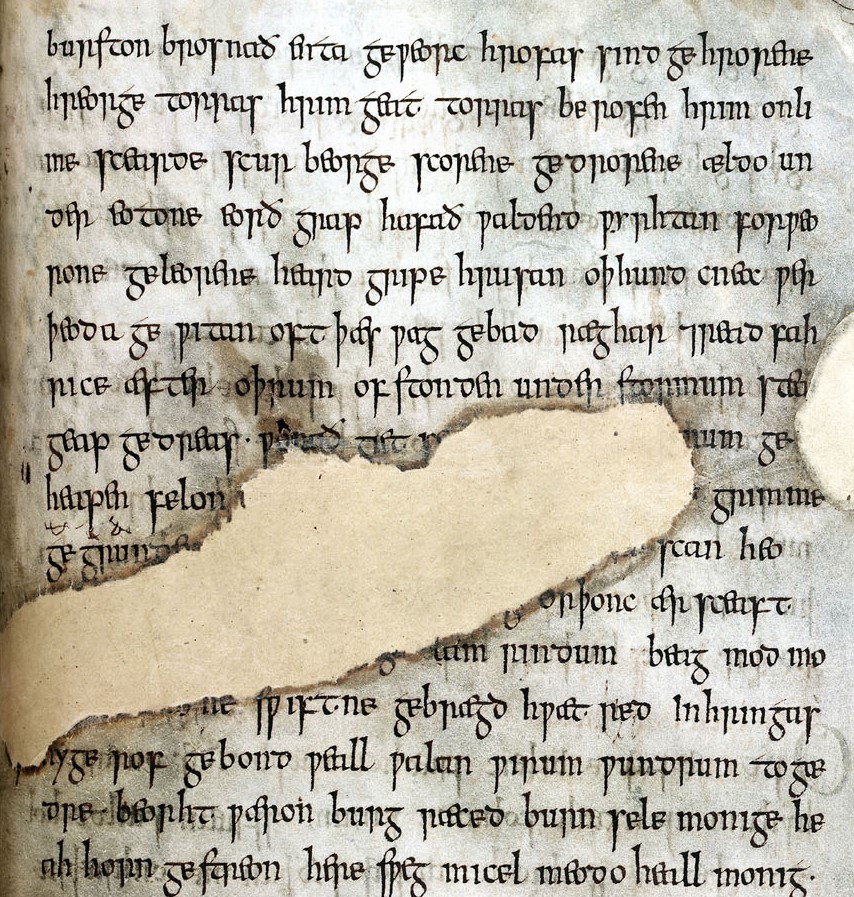 burston brosnað enta geƿeorc hrofas sind gehrorene
hreorge torras hrim geat torras berofen hrim onli
me scearde scur beorge scorene gedrorene ældo un
der eotone eorð grap hafað ƿaldend ƿyrhtan forƿeo
rone geleorene heard gripe hrusan oþhund cnea ƿer
þeoda ge ƿitan oft þæs ƿag gebad ræghar ⁊read fah
rice æfter oþrum of stonden under stormum stea
geap gedreas· ƿonað giet s num ge
heapen felon grimme
ge grunde scan heo
g orþonc ær sceaft·
g lam rindum beag mod mo
ne sƿiftne gebrægd hƿæt red Inhringas
hyge rof gebond ƿeall ƿalan ƿirum ƿundrum togæ
dre· beorht ƿæron burg ræced burn sele monige he
ah horn gestreon here sƿeg micel meodo heall monig·